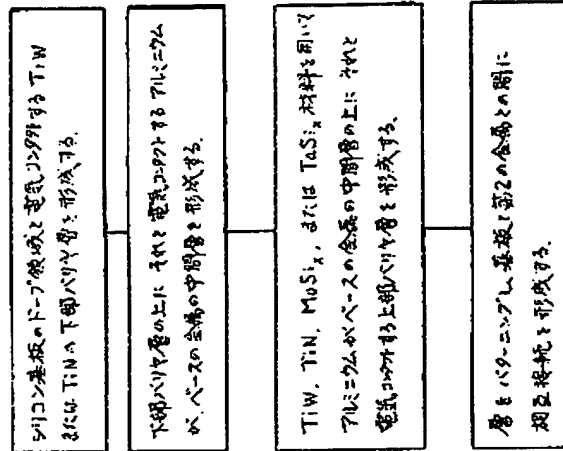 シリコン基板のドープ領域と電気コンタクトする TiW
または TiN の下部バリヤ層を形成する.
下部バリヤ層の上に それと電気コンタクトするアルミニウム
が ベースの金属の中間層を形成する.
TiW, TiN, MoSiₓ, または TaSiₓ 材料を用いて
アルミニウムがベースの金属の中間層の上に それと
電気コンタクトする上部バリヤ層を形成する.
層をパターニングし 基板と第2の金属との間に
相互接続を形成する.